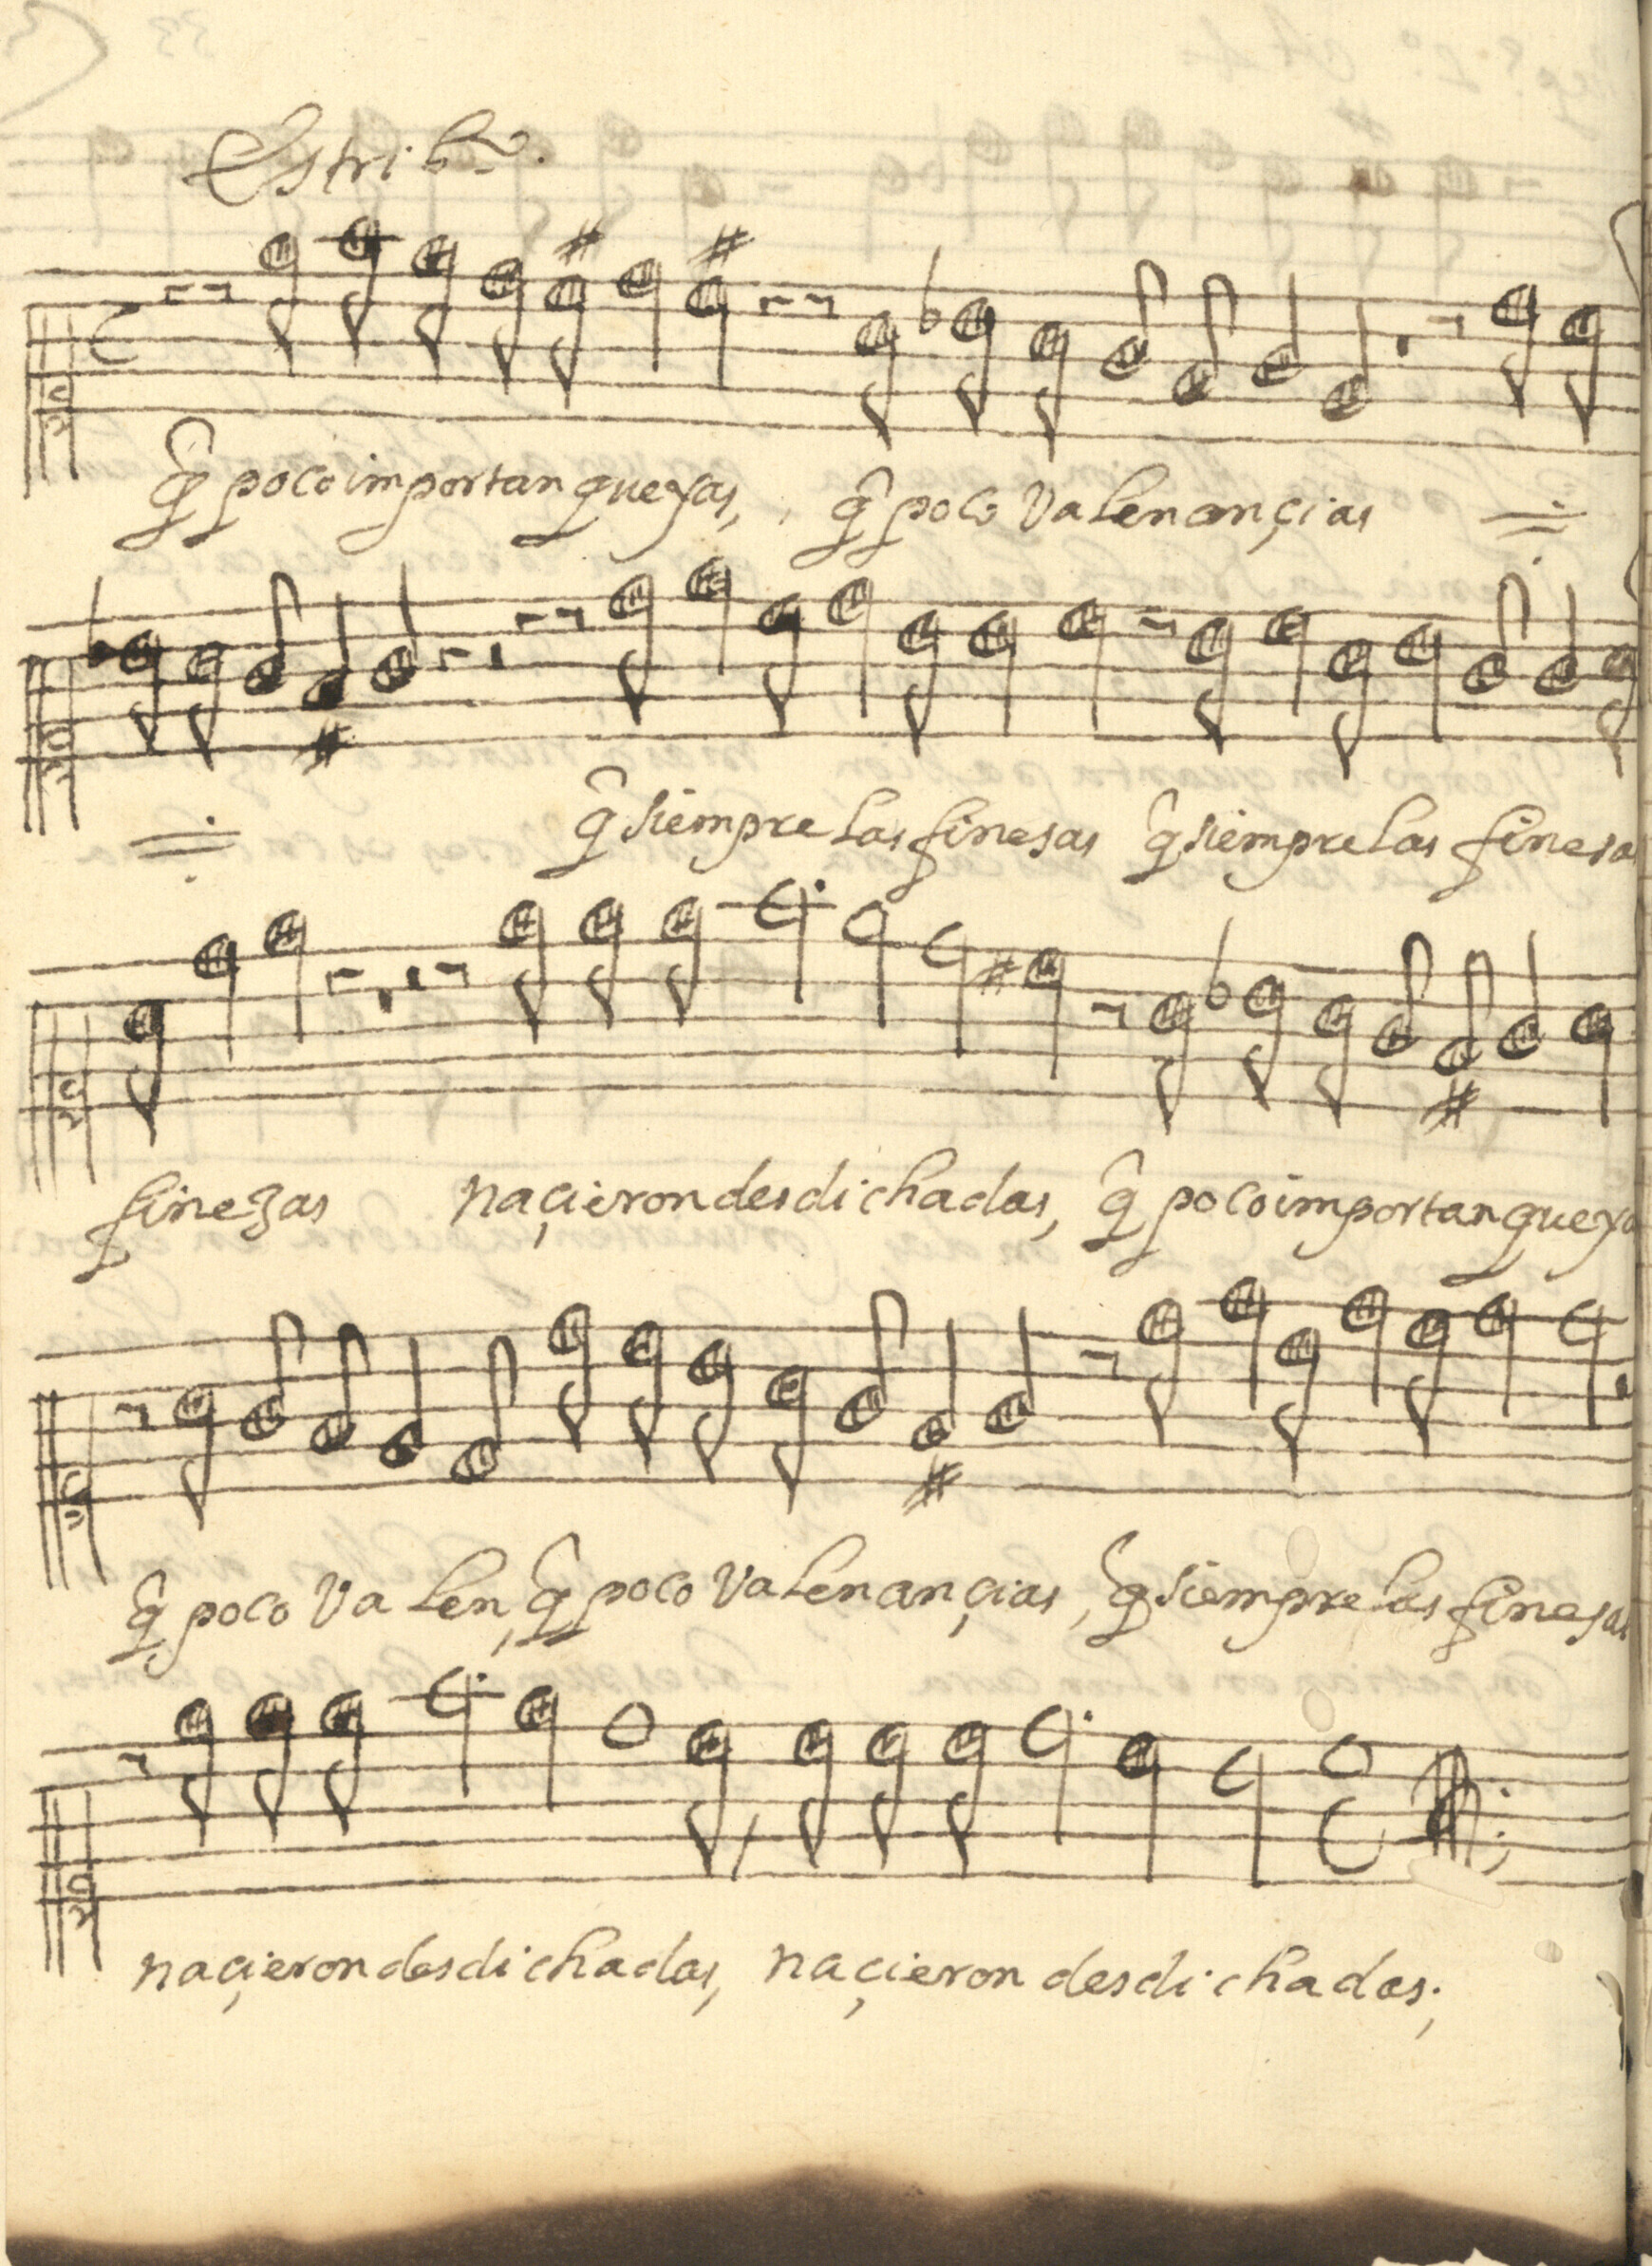 Estribo.
q̃ poco importan queyas, q̃ poco Valen ançias
q̃ siempre las finesas q̃ siempre las finesas
finezas naçieron desdichadas, q̃ poco importan queyas
q̃ poco Valen, q̃ poco Valen ançias, q̃ siempre las finesas
naçieron desdichadas, naçieron desdichadas;